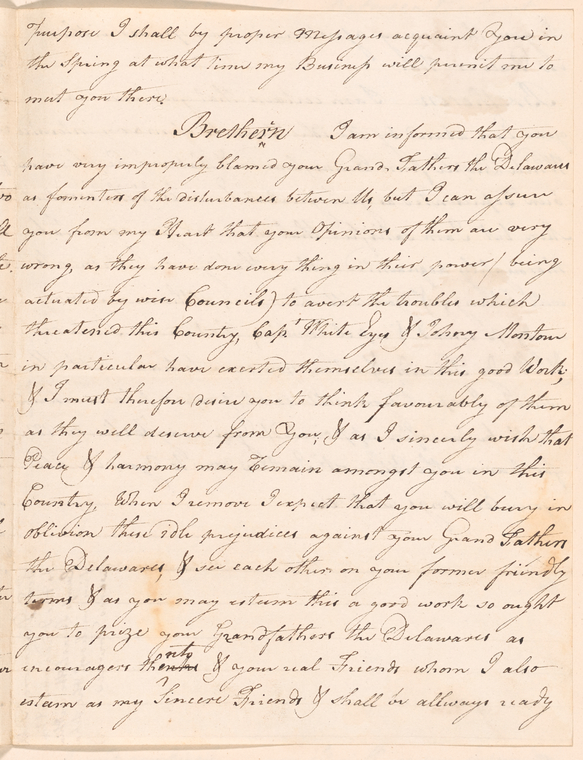 purpose I shall by proper Messages acquaint You in
the Spring at what time my Business will permit me to
meet you there,
Brethern I am informed that you
have very improperly blamed your Grand Fathers the Delawares
as fomenters of the disturbances between Us, but I can assure
you from my Heart that your Opinions of them are very
wrong, as they have done every thing in their power (being
actuated by wise Councils) to avert the troubles which
threatened this Country, Capt White Eyes & Johny Montour
in particular have exerted themselves in this good Work,
& I must therefore desire you to think favourably of them
as they well deserve from You, & as I sincerly wish that
Peace & harmony may Remain amongst you in this
Country, When I remove I expect that you will bury in
oblivion these idle prejudices against your Grand Fathers
the Delawares, & see each other on your former friendly
terms & as you may esteem this a good work so ought
you to prize your Grandfathers the Delawares as
encouragers thereunto & your real Friends whom I also
esteem as my Sincere Friends & shall be allways ready